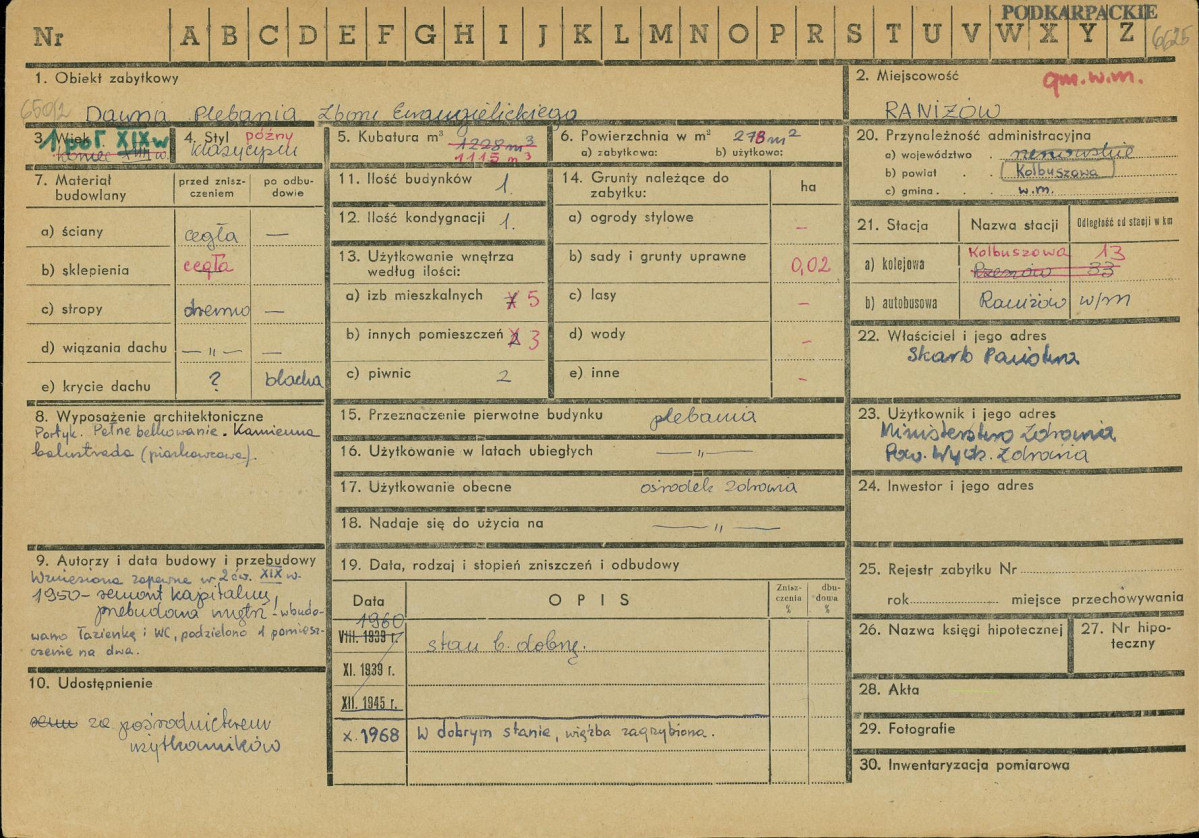 PODKARPACKIE
Nr A B C D E F G H I J K L M N O P R S T U V W X Y Z 6625
1. Obiekt zabytkowy
650/2 Dawna Plebania Zboru Ewangielickiego
2. Miejscowość gm.w.m.
RANIŻÓW
3. Wiek 1 poł. XIX w
koniec XVIII w.
4. Styl późny
klasycyzm
5. Kubatura m³ 1228 m³
1115 m³
6. Powierzchnia w m² 278 m²
a) zabytkowa: b) użytkowa:
7. Materiał budowlany
przed zniszczeniem
po odbudowie
a) ściany cegła —
b) sklepienia cegła
c) stropy drewno —
d) wiązania dachu — " — —
e) krycie dachu ? blacha
8. Wyposażenie architektoniczne
Portyk. Pełne belkowanie. Kamienna
balustrada (piaskowcowa).
9. Autorzy i data budowy i przebudowy
Wzniesiona zapewne w 2 ćw. XIX w.
1950 - remont kapitalny,
przebudowa wnętrz - wbudo-
wano łazienkę i WC, podzielono 1 pomiesz-
czenie na dwa.
10. Udostępnienie
za pośrednictwem
użytkowników
11. Ilość budynków 1.
12. Ilość kondygnacji 1.
13. Użytkowanie wnętrza
według ilości:
a) izb mieszkalnych 5
b) innych pomieszczeń 2 3
c) piwnic 2
14. Grunty należące do
zabytku: ha
a) ogrody stylowe –
b) sady i grunty uprawne 0,02
c) lasy –
d) wody –
e) inne –
15. Przeznaczenie pierwotne budynku plebania
16. Użytkowanie w latach ubiegłych — " —
17. Użytkowanie obecne ośrodek zdrowia
18. Nadaje się do użycia na — " —
19. Data, rodzaj i stopień zniszczeń i odbudowy
Data OPIS Zniszczenia % dbudowa %
1960
VIII. 1939 r. stan b. dobry.
XI. 1939 r.
XII. 1945 r.
X. 1968 W dobrym stanie, więźba zagrzybiona.
20. Przynależność administracyjna
a) województwo . rzeszowskie
b) powiat . . Kolbuszowa
c) gmina . . w.m.
21. Stacja Nazwa stacji Odległość od stacji w km
a) kolejowa Kolbuszowa 13
Rzeszów 33
b) autobusowa Raniżów w/m
22. Właściciel i jego adres
Skarb Państwa
23. Użytkownik i jego adres
Ministerstwo Zdrowia
Pow. Wydz. Zdrowia
24. Inwestor i jego adres
25. Rejestr zabytku Nr
rok miejsce przechowywania
26. Nazwa księgi hipotecznej
27. Nr hipoteczny
28. Akta
29. Fotografie
30. Inwentaryzacja pomiarowa